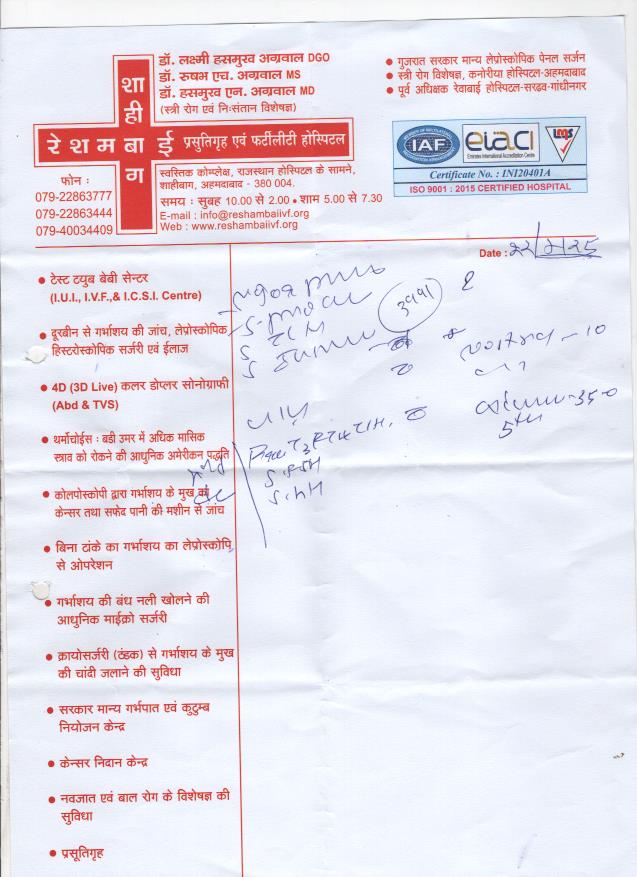 डॉ. लक्ष्मी हसमुख अग्रवाल DGO
डॉ. रुषभ एच. अग्रवाल MS
डॉ. हसमुख एन. अग्रवाल MD
(स्त्री रोग एवं निःसंतान विशेषज्ञ)
शाहीबाग
रेशमबाई प्रसुतिगृह एवं फर्टीलीटी होस्पिटल
स्वस्तिक कोम्प्लेक्ष, राजस्थान होस्पिटल के सामने,
शाहीबाग, अहमदाबाद - 380 004.
समय : सुबह 10.00 से 2.00 • शाम 5.00 से 7.30
E-mail : info@reshambaiivf.org
Web : www.reshambaiivf.org
फोन :
079-22863777
079-22863444
079-40034409
• गुजरात सरकार मान्य लेप्रोस्कोपिक पेनल सर्जन
• स्त्री रोग विशेषज्ञ, कनोरीया होस्पिटल-अहमदाबाद
• पूर्व अधिक्षक रेवाबाई होस्पिटल-सरढव-गांधीनगर
IAF
eiaci
Emirates International Accreditation Centre
Certificate No. : INI20401A
ISO 9001 : 2015 CERTIFIED HOSPITAL
Date :
• टेस्ट टयुब बेबी सेन्टर
(I.U.I., I.V.F.,& I.C.S.I. Centre)
• दूरबीन से गर्भाशय की जांच, लेप्रोस्कोपिक
हिस्टरोस्कोपिक सर्जरी एवं ईलाज
• 4D (3D Live) कलर डोप्लर सोनोग्राफी
(Abd & TVS)
• थर्मोचोईस : बडी उमर में अधिक मासिक
स्त्राव को रोकने की आधुनिक अमेरीकन पद्धति
• कोलपोस्कोपी द्वारा गर्भाशय के मुख का
केन्सर तथा सफेद पानी की मशीन से जांच
• बिना टांके का गर्भाशय का लेप्रोस्कोपि
से ओपरेशन
• गर्भाशय की बंध नली खोलने की
आधुनिक माईक्रो सर्जरी
• क्रायोसर्जरी (ठंडक) से गर्भाशय के मुख
की चांदी जलाने की सुविधा
• सरकार मान्य गर्भपात एवं कुटुम्ब
नियोजन केन्द्र
• केन्सर निदान केन्द्र
• नवजात एवं बाल रोग के विशेषज्ञ की
सुविधा
• प्रसूतिगृह
5th
S. FSH
S. LH